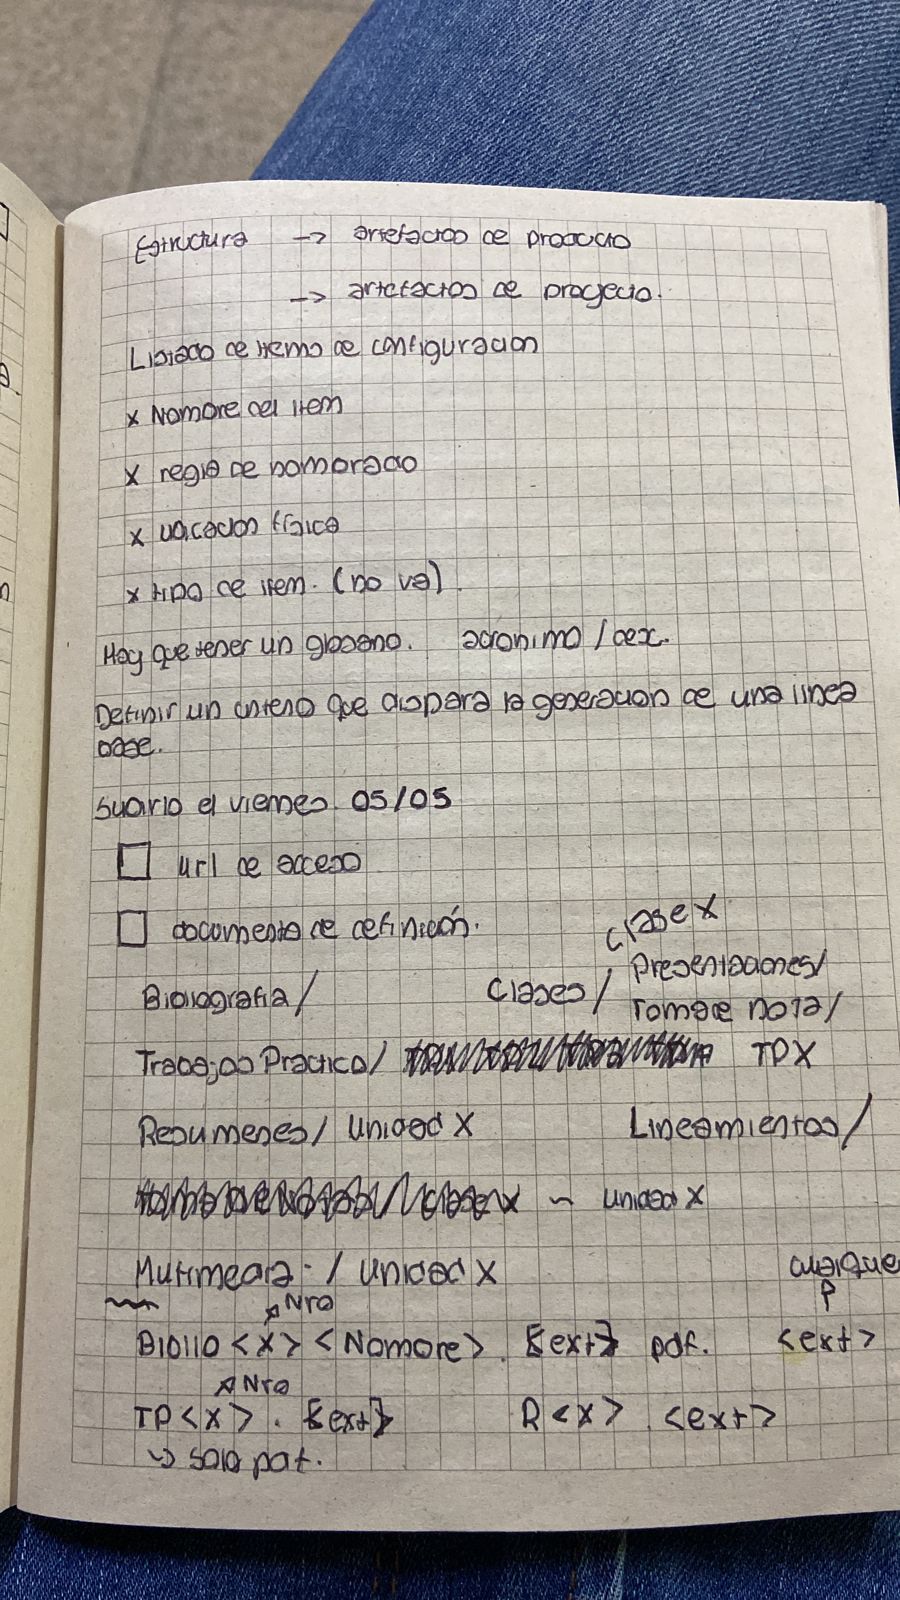 Estructura -> artefactos de producto
-> artefactos de proyecto.
Listado de items de configuracion
x Nombre del item
x regla de nombrado
x ubicacion física
x tipo de item. (no va).
Hay que tener un glosario. acronimo / desc.
Definir un criterio que dispara la generacion de una linea
base.
Subirlo el viernes 05/05
url de acceso
documento de definición.
clase x
Bibliografia / Clases / Presentaciones/
Tomar de nota/
Trabajos Practico/ TPX
Resumenes/ Unidad X Lineamientos/
~ unidad x
Multimedia / Unidad X
cualquie
Nro
Biblio <x> <Nombre>. [ext] pdf. <ext>
Nro
TP <x> . [ext] R <x> . <ext>
-> solo pdf.